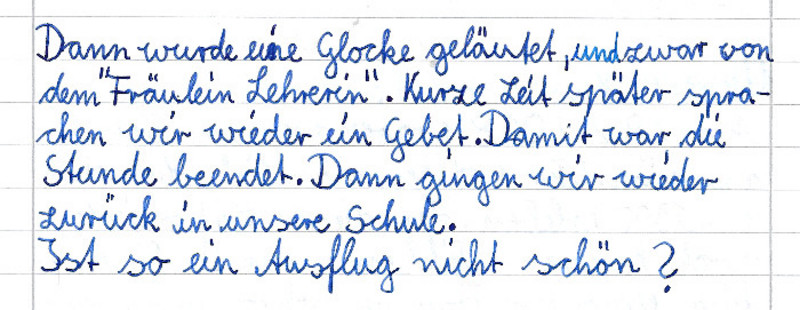 Dann wurde eine Glocke geläutet, und zwar von
dem "Fräulein Lehrerin". Kurze Zeit später spra-
chen wir wieder ein Gebet. Damit war die
Stunde beendet. Dann gingen wir wieder
zurück in unsere Schule.
Ist so ein Ausflug nicht schön?